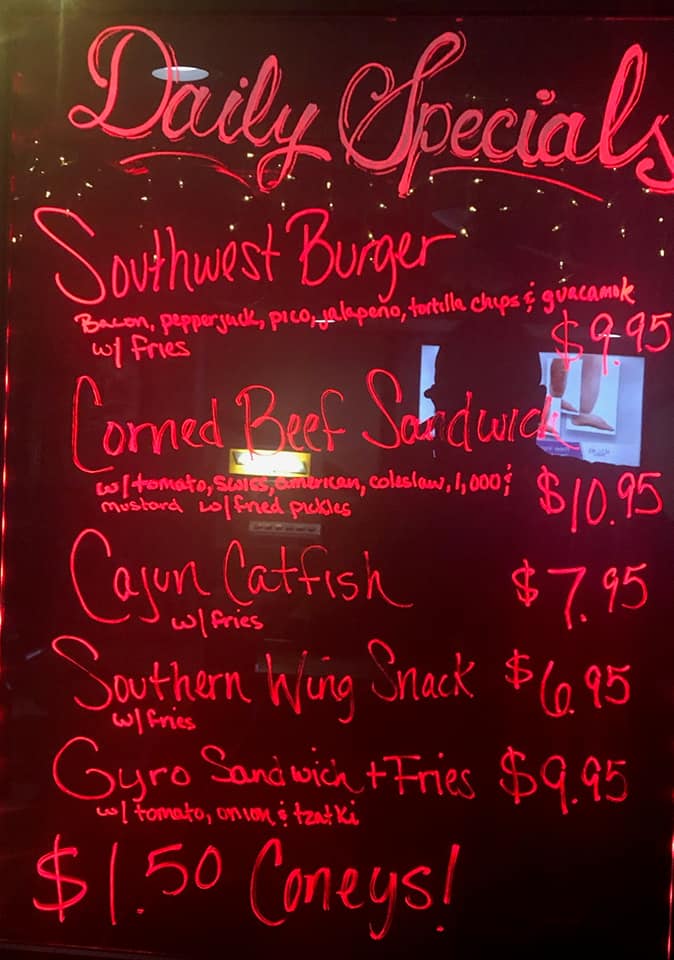 Daily Specials
Southwest Burger
Bacon, pepperjack, pico, jalapeno, tortilla chips & guacamole
w/ fries $9.95
Corned Beef Sandwich
w/ tomato, swiss, american, coleslaw, 1,000 &
mustard w/ fried pickles $10.95
Cajun Catfish $7.95
w/ fries
Southern Wing Snack $6.95
w/ fries
Gyro Sandwich + Fries $9.95
w/ tomato, onion & tzatki
$1.50 Coneys!